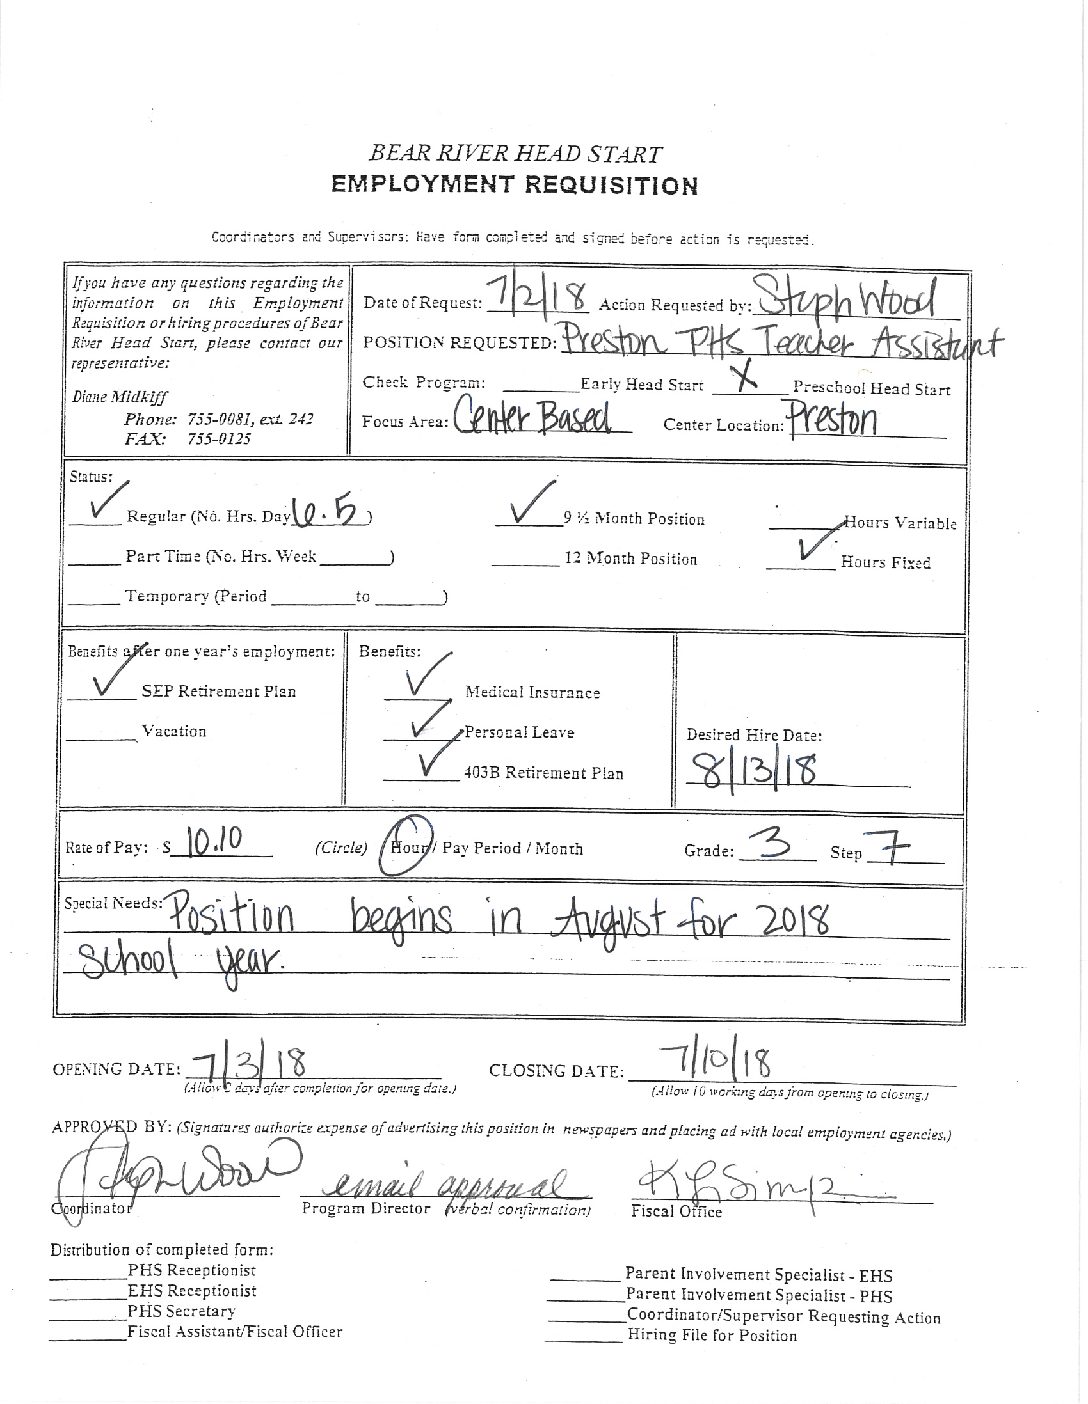 BEAR RIVER HEAD START
EMPLOYMENT REQUISITION
Coordinators and Supervisors: Have form completed and signed before action is requested.
If you have any questions regarding the
information on this Employment
Requisition or hiring procedures of Bear
River Head Start, please contact our
representative:
Diane Midkiff
Phone: 755-0081, ext. 242
FAX: 755-0125
Date of Request: 7/2/18 Action Requested by: Steph Wood
POSITION REQUESTED: Preston PHS Teacher Assistant
Check Program: ______ Early Head Start X Preschool Head Start
Focus Area: Center Based Center Location: Preston
Status:
✓ Regular (No. Hrs. Day 6.5 ) ✓ 9 ½ Month Position ______ Hours Variable
______ Part Time (No. Hrs. Week ______ ) ______ 12 Month Position ✓ Hours Fixed
______ Temporary (Period ______ to ______ )
Benefits after one year's employment:
✓ SEP Retirement Plan
______ Vacation
Benefits:
✓ Medical Insurance
✓ Personal Leave
✓ 403B Retirement Plan
Desired Hire Date:
8/13/18
Rate of Pay: $ 10.10 (Circle) Hour / Pay Period / Month Grade: 3 Step 7
Special Needs: Position begins in August for 2018
school year.
OPENING DATE: 7/3/18 CLOSING DATE: 7/10/18
(Allow days after completion for opening date.) (Allow 10 working days from opening to closing.)
APPROVED BY: (Signatures authorize expense of advertising this position in newspapers and placing ad with local employment agencies.)
Steph Wood email approval
Coordinator Program Director (verbal confirmation) Fiscal Office
Distribution of completed form:
______ PHS Receptionist
______ EHS Receptionist
______ PHS Secretary
______ Fiscal Assistant/Fiscal Officer
______ Parent Involvement Specialist - EHS
______ Parent Involvement Specialist - PHS
______ Coordinator/Supervisor Requesting Action
______ Hiring File for Position